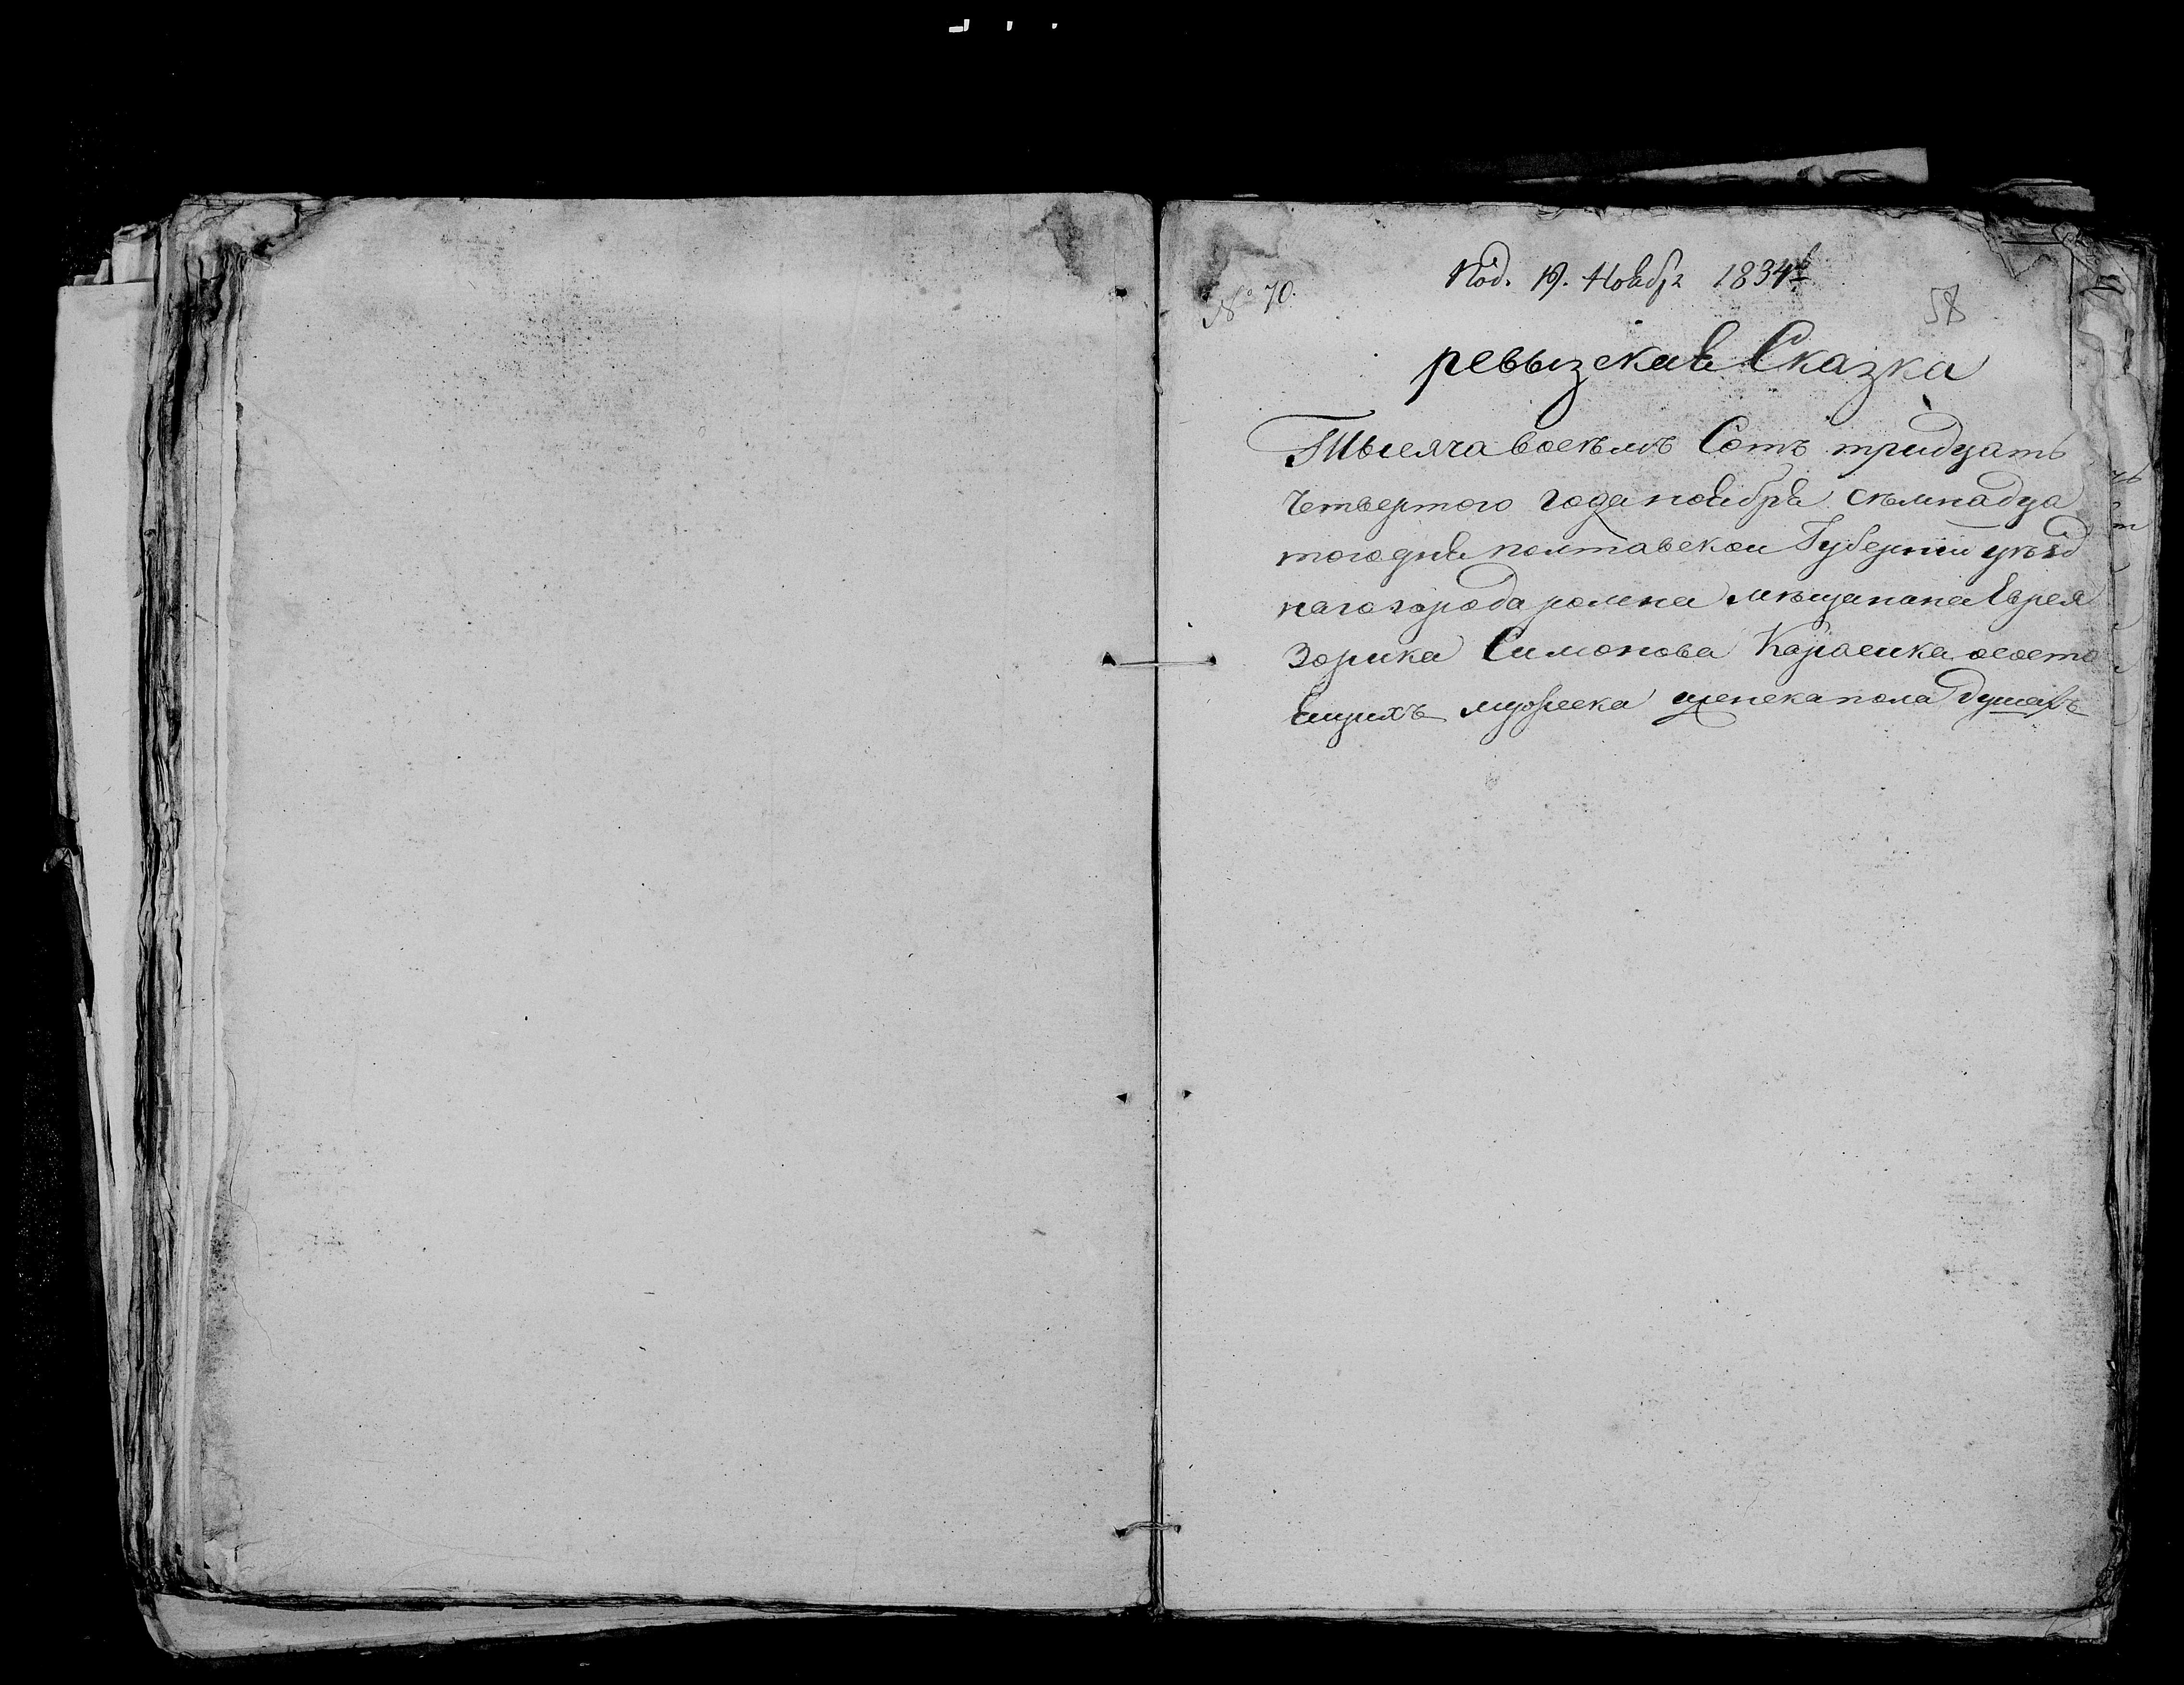 № 70.
Под. 19. Ноябр 1834 г
58
ревызская Сказка
Тысяча восѣмъ Сотъ тридцать
Четвертого года ноября сѣмнадца
того дня полтавской Губернии уѣзд
наго города ромна мѣщанина Еврея
Зорика Симонова Карасика осостоя
щихъ мужеска женска пола душахъ